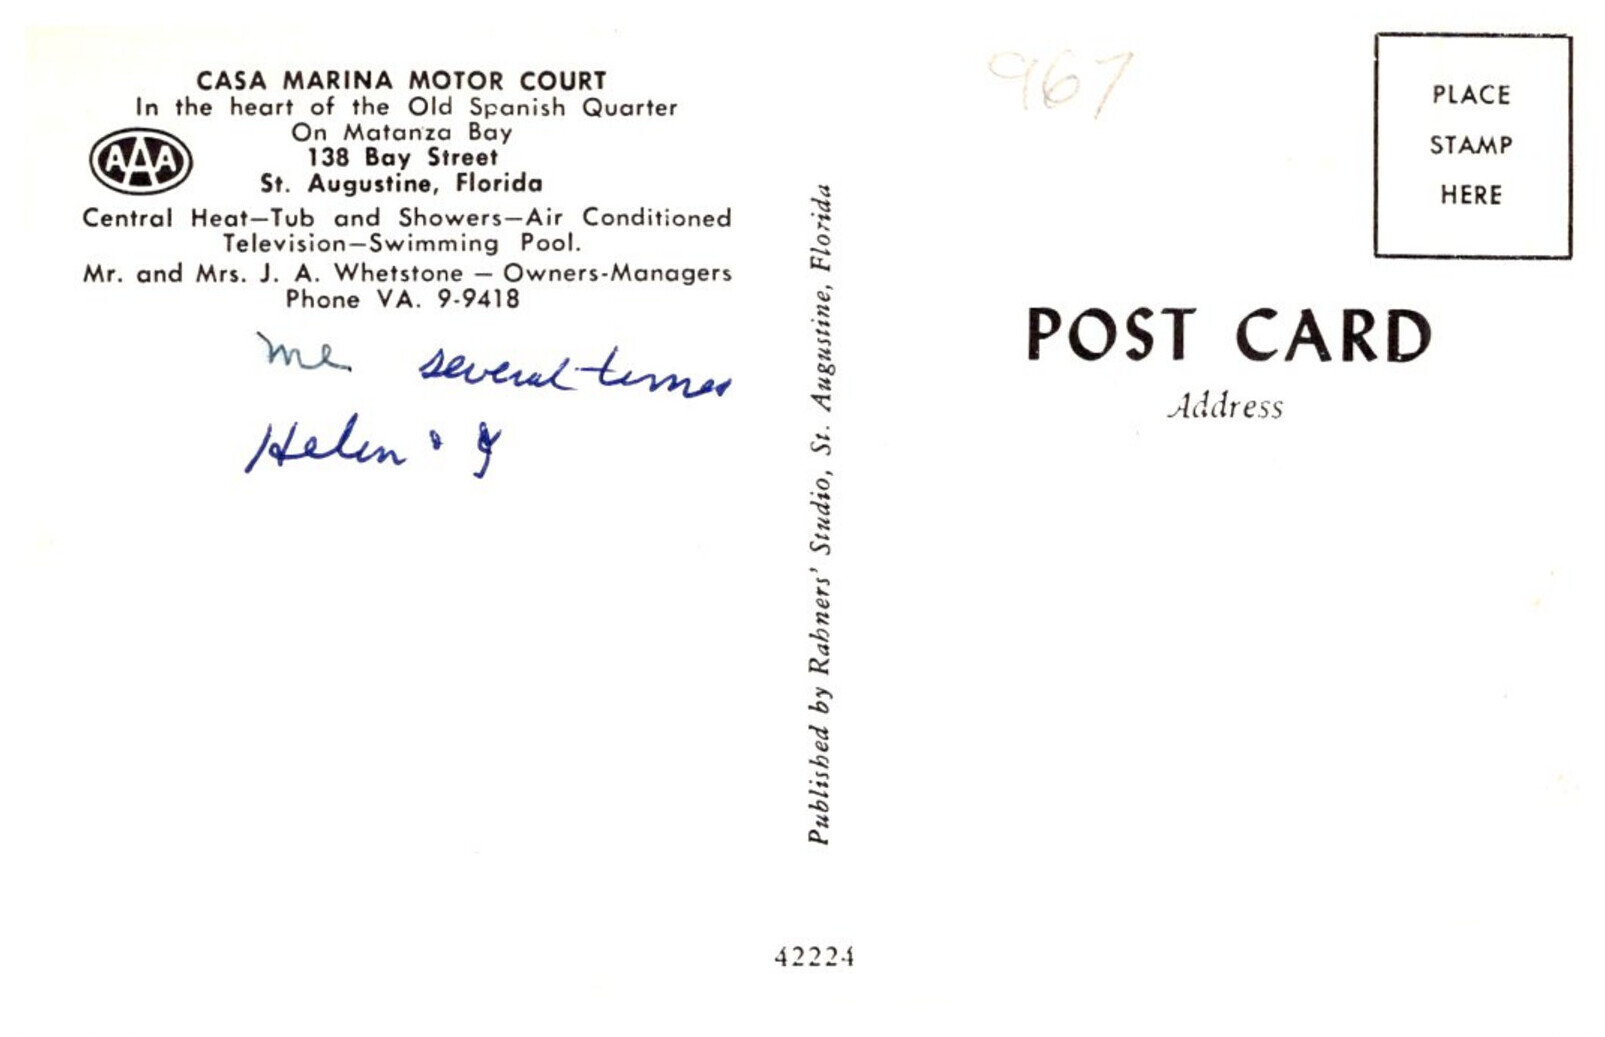 CASA MARINA MOTOR COURT
In the heart of the Old Spanish Quarter
On Matanza Bay
AAA
138 Bay Street
St. Augustine, Florida
Central Heat—Tub and Showers—Air Conditioned
Television—Swimming Pool.
Mr. and Mrs. J. A. Whetstone — Owners-Managers
Phone VA. 9-9418
me several times
Helen & I
Published by Rahners' Studio, St. Augustine, Florida
42224
967
PLACE
STAMP
HERE
POST CARD
Address